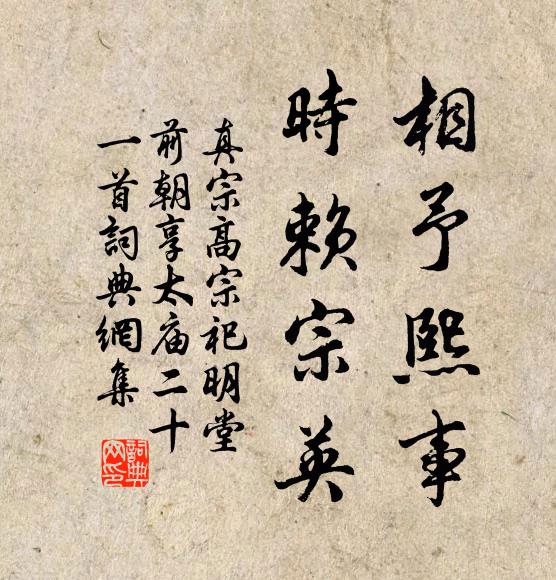 相予熙事
時賴宗英
真宗高宗祀明堂
前朝享太庙二十
一首詞典網集
詞典
网印